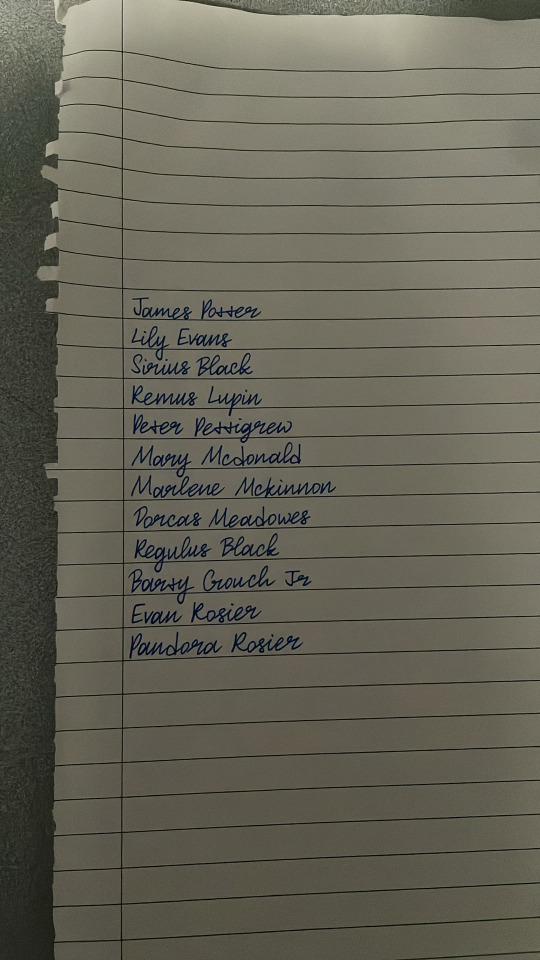 James Potter
Lily Evans
Sirius Black
Remus Lupin
Peter Pettigrew
Mary Mcdonald
Marlene Mckinnon
Dorcas Meadowes
Regulus Black
Barty Crouch Jr
Evan Rosier
Pandora Rosier